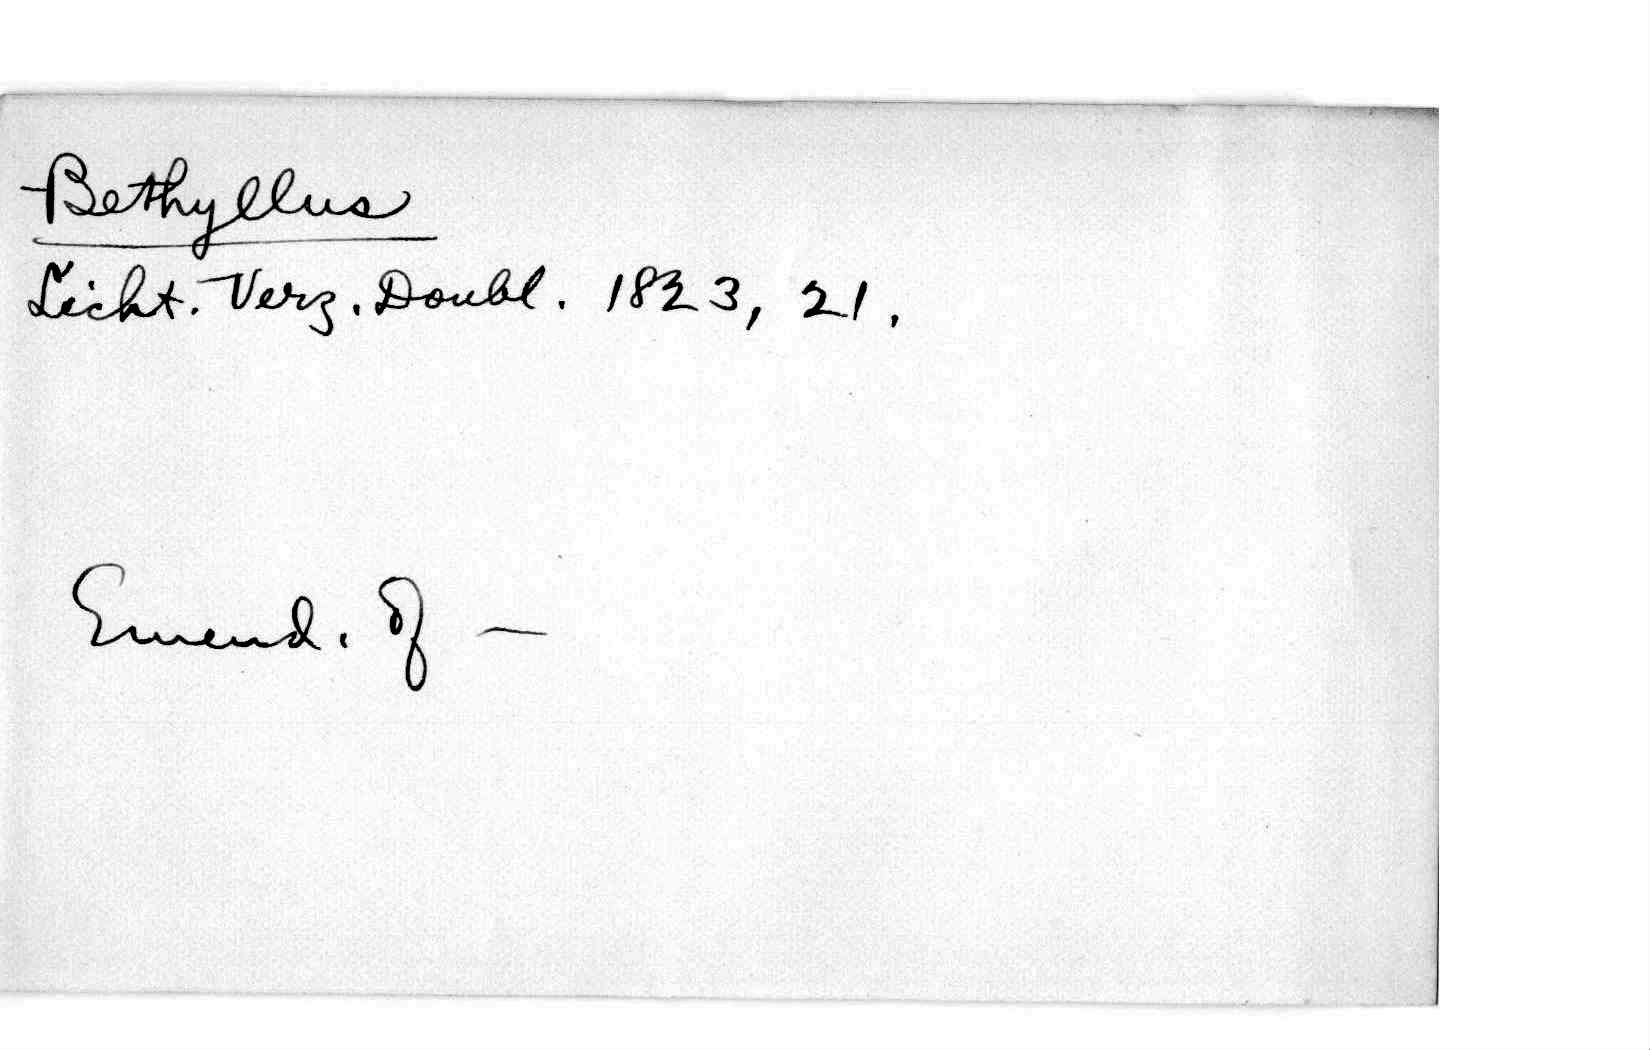 Bethyllus
Licht. Verz. Doubl. 1823, 21.
Emend. of —